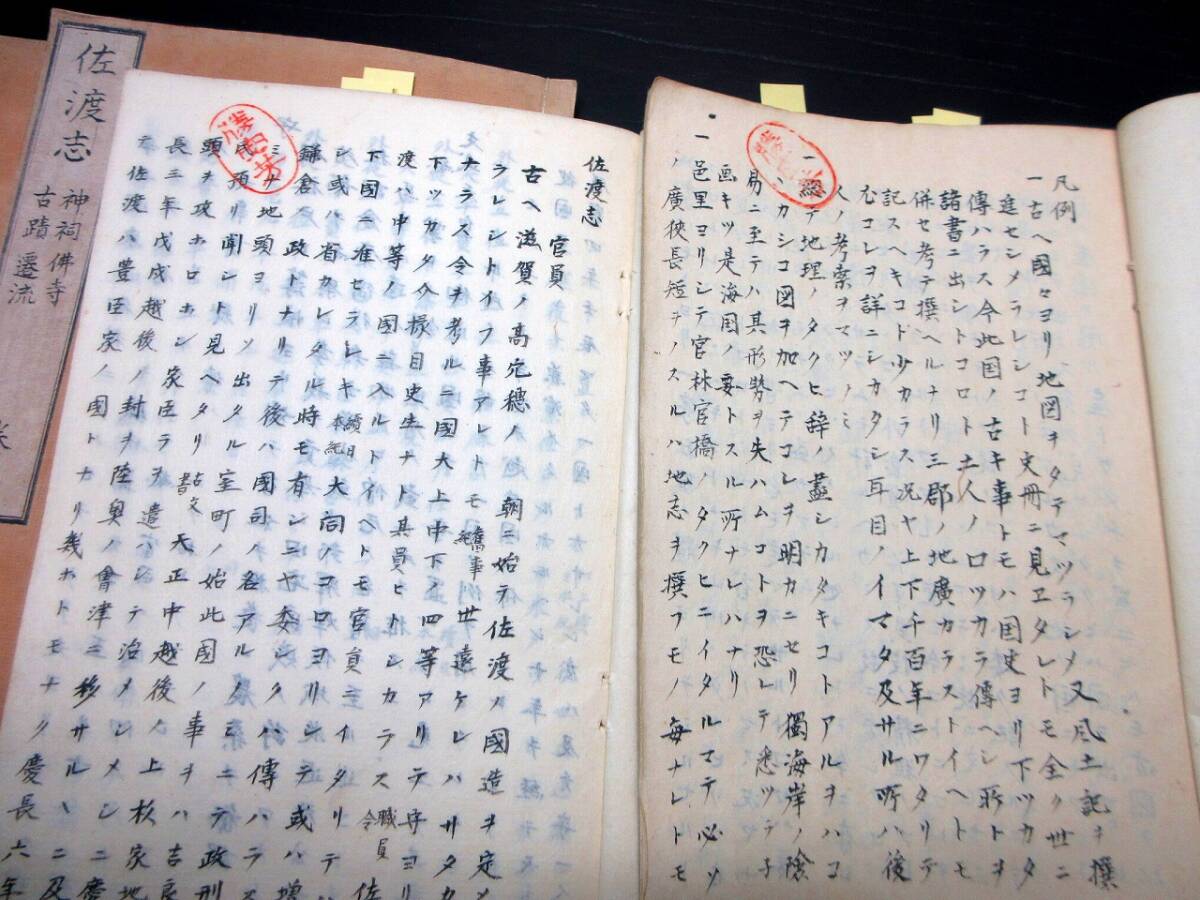 凡例
一古ヘ國々ヨリ地図ヲタテマツラシメ又風土記ヲ撰
進セシメラレシコト史冊ニ見エタレトモ全ク世ニ
傳ハラス今此国ノ古キ事トモハ国史ヨリ下ツカタ
諸書ニ出シトコロト土人ノ口ツカラ傳ヘシ所トヲ
併セ考テ撰ヘルナリ三郡ノ地廣カラストイヘトモ
記スヘキコト少カラス况ヤ上下千百年ニワタリテ
コレヲ詳ニシカタシ耳目ノイマタ及サル所ハ後
人ノ考案ヲマツノミ
一總テ地理ノタクヒ辞ノ盡シカタキコトアルヲハコ
カシコ図ヲ加ヘテコレヲ明カニセリ獨海岸ノ險
易ニ至テハ其形勢ヲ失ハムコトヲ恐レテ悉ツラ子
画キツ是海国ノ要トスル所ナレハナリ
一邑里ヨリシテ官林官橋ノタクヒニイタルマテ必ソ
ノ廣狹長短ヲノスルハ地志ヲ撰フモノヽ毎ナレトモ
佐渡志
官員
古ヘ滋賀ノ高穴穗ノ朝ニ始テ佐渡ノ國造ヲ定メ
ラレシトイフ事アレトモ舊事紀世遠ケレハサタカ
ナラス令ヲ考ルニ國大上中下四等アリテ守ヨリ
下ツカタ介掾目史生ナト其員ヒトシカラス職員令佐
渡ハ中等ノ國ニ入ルトイヘトモ官員ニイタリテハ
下國ニ准セラレキ續日本紀大同ノコロヨリシテ或ハ増
シ或ハ省カレタル時モ有シニヤ委シクハ傳ハラス
鎌倉ノ政トナリテ後ハ國司ノ名アルノミニテ政刑
ミナ地頭ヨリソ出タル室町ノ始此國ノ事ヲハ吉良
氏預リ聞シト見ヘタリ古文書天正中越後ノ上杉家地
頭ヲ攻ホロホシ家臣ラヲ遣ハシテ治メシメシニ慶
長三年戊戌越後ノ封ヲ陸奥ノ會津ニ移サルヽニ及
テ佐渡ハ豊臣家ノ國トナリ幾ホトモナク慶長六年
佐渡志
神祠 佛寺
古蹟 遷流